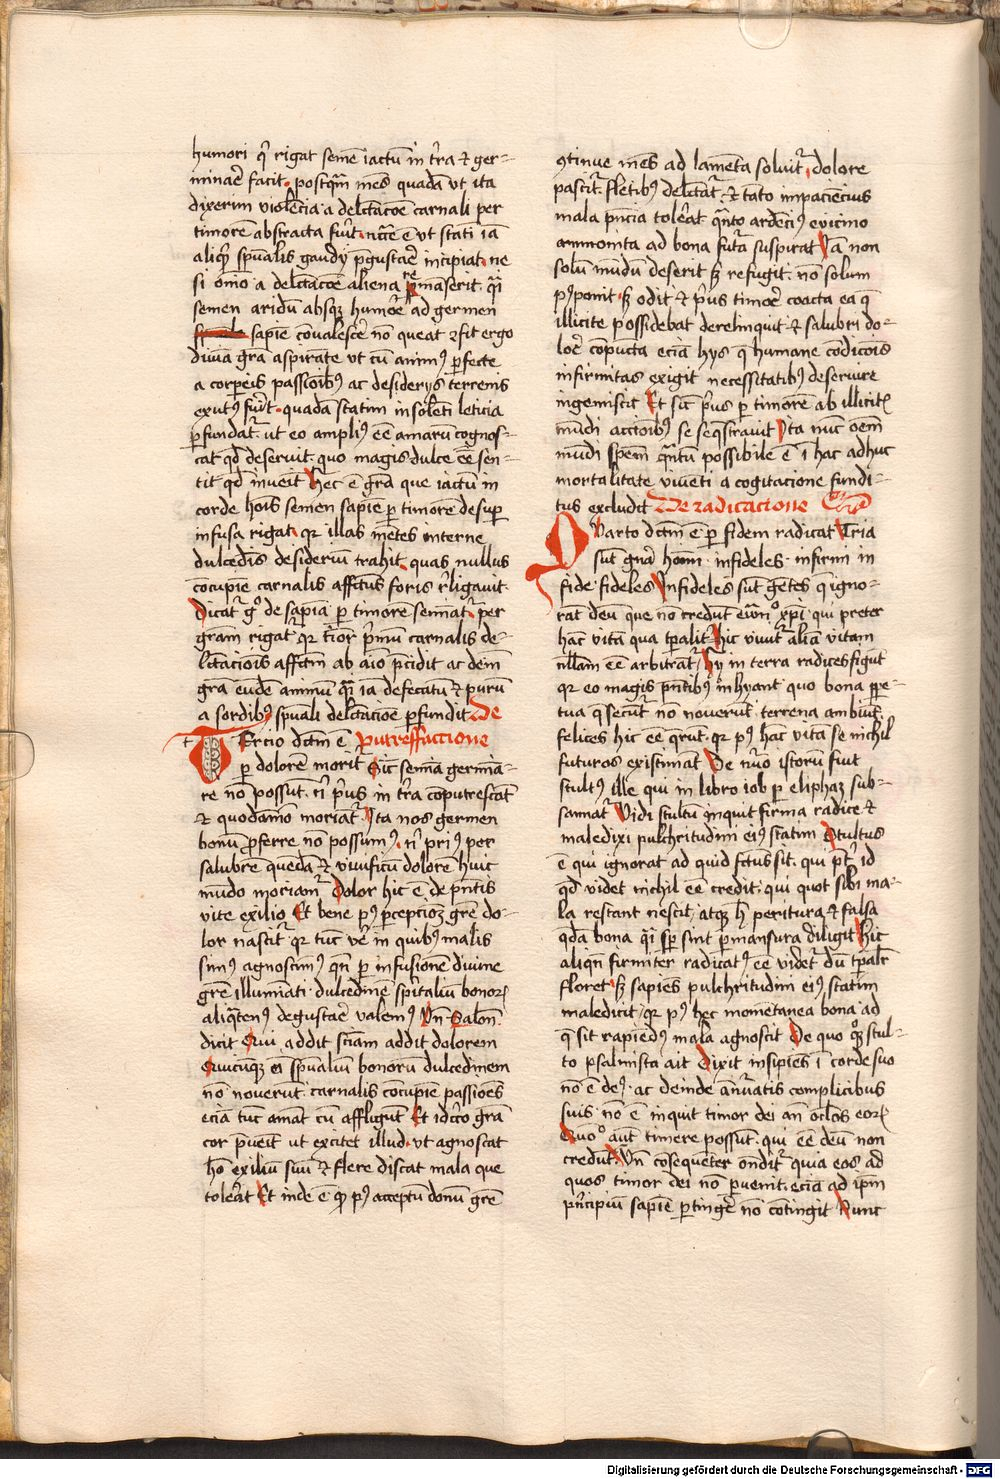 humori qͥ rigat semē iactū in tͬra ⁊ ger=
minaͬe facit · postqͣm mēs quadā vt ita
dixerim violēcia a delctacōe carnali per
timorē abstracta fuͥt · ncͥẽ ē vt statī iā
aliqͥd spūalis gaudÿ pgustaͬe incipiat · ne
si om̄o a delctacōe aliena pͬmāserit · qͣi
semen aridū absqꝫ humoͬe ad germen
sapīe cōualesceͬ nō queat ⁊ fit ergo
diuīa gr̄a aspirāte vt cū animꝰ ꝑfecte
a corꝑeis passioībꝰ ac desiderÿs terrenis
exutꝰ fuͥt · quadā statim insolēti leticia
ꝑfundatͬ · ut eo ampliꝰ eē amarū cognos=
cat qd̄ deseruit · quo magis dulce eē sen=
tit qd̄ inueīt Hec ē gr̄a que iactū in
corde hoīs semen sapīe ꝑ timorē desuꝑ
infusa rigat · qꝛ illas mētes interne
dulcedīs desideriū trahit · quas nullus
cōcupīe carnalis affctus foris r̄ligauit ·
Dicatͬ gͦ de sapīa ꝑ timorē semīatͬ · per
gram rigatͬ qꝛ tīor pͥmū carnalis de=
lctaciōis affctm̄ ab aīo pͥcidit ac dem̄
gr̄a eundē animū qͣi iā defecatū ⁊ purū
a sordibꝰ spūali delctacioē ꝑfundit De
TErcio dctm̄ ē putreffactione
ꝑ dolorē moritͬ Sic semīa germīa=
re nō possūt · nͥ pͥus in tͬra cōputrescāt
⁊ quodāmō moriātͬ · Ita nos germen
bonū ꝓferre nō possumꝰ · nͥ priꝰ per
salubrē quedā ⁊ viuificū dolorē huic
mūdo moriamͬ Dolor hic ē de pn̄tis
vite exilio Et bene pꝰ ꝑcepcioꝫ gr̄e do=
lor nascitͬ qꝛ tūc veͬ in quibꝰ malis
simꝰ agnoscimꝰ qn̄ ꝑ infusionē diuine
gr̄e illumīati · dulcedinē spiͬtaliū bonoꝝ
aliqͣtenꝰ degustaͬe valemꝰ Vn̄ Salom̄ ·
dicit Qui addit sciāͫ addit dolorem
Quicūqꝫ eī spūaliū bonorū dulcedinem
nō nouerūt · carnalis cōcupīe passiōes
eciā tūc amāt cū affligūt Et idcͬco gr̄a
cor pͥueīt ut excitet illud · vt agnoscat
hō exiliū suū ⁊ flere discat mala que
toleͬat Et inde ē qͥ pꝰ acceptū donū gr̄e
ꝯtinue mēs ad lamēta soluitͬ · dolore
pascitͬ · fletibꝰ delctatͬ · ⁊ tāto impacīecius
mala pn̄cia toleͬat · qͣnto ardēciꝰ e vicino
ammonita ad bona futͬa suspirat Iā non
solū mūdū deserit sꝫ refugit · nō solum
pꝰponit · sꝫ odit ⁊ pͥus timoͬe coacta ea q̄
illicite possidebat derelinquit · ⁊ salubri do=
loͬe cōpūcta eciā hÿs q̄ humane cōdicōis
infirmitas exigit necessitatibꝰ deseruire
ingemiscit Et sic pͥus ꝑ timorē ab illicitꝭ
mūdi accioībꝰ se seqͥstrauit Ita nūc oēm
mūdi spēm qͣntū possibile ē ī hac adhuc
mortalitate viuēti a cogitacione fundi=
tus excludit De radicacione
QUarto dctm̄ ē ꝑ fidem radicat Tria
sūt gnͣā homī · infideles · infirmi in
fide · fideles Infideles sūt gētes q̄ igno=
rāt deū que nō credūt · qui preter
hāc vitā qua tꝑalitͬ hic viuūtͬ aliā vitam
nllam eē arbitrātͬ Hÿ in terra radices figūt
qꝛ eo magis pn̄tibꝰ inhyant · quo bona ꝑpe=
tua q̄ secūtͬ nō nouerūt · terrena ambiūt ·
felices hic eē qͬrūt · qꝛ pꝰ hāc vitā se nichil
futuros existimāt De nūo istorū fuit
stultꝰ ille qui in libro iob ꝑ eliphaꝫ sub=
sannatͬ Vidi stultū inquit firma radice ⁊
maledixi pulchritudini eiꝰ statim Stultus
ē qui ignorat ad quid fctūs sit · qui pͬt id
qd̄ videt nichil eē credit · qui quot sibi ma=
la restant nescit · atqꝫ h̄ peritura ⁊ falsa
qͣda bona qͣi spͬ sint ꝑmansura diligit Hic
aliqn̄ firmiter radicatꝰ eē videtͬ dū tꝑalitͬ
floret · sꝫ sapiēs pulchritudini eiꝰ statim
maledicit · qꝛ pꝰ hec momētanea bona ad
q̄ sit rapiēdꝰ mala agnoscit De quo qͦꝫ stul=
to psalmista ait Dixit insipiēs ī corde suo
nō ē deꝰ · ac deinde ānūatis complicibus
suis nō ē inquit timor dei an̄ oclos eoꝝ
Quoͦ aūt timere possūt · qui eē deū non
credūt · Vn̄ cōsequēter ondītͬ quia eos ad
quos timor dei nō ꝑuenit · eciā ad ip̄m
pͥncipiū sapīe ꝑtingeͬ nō cōtingit Nunc
Digitalisierung gefördert durch die Deutsche Forschungsgemeinschaft - DFG